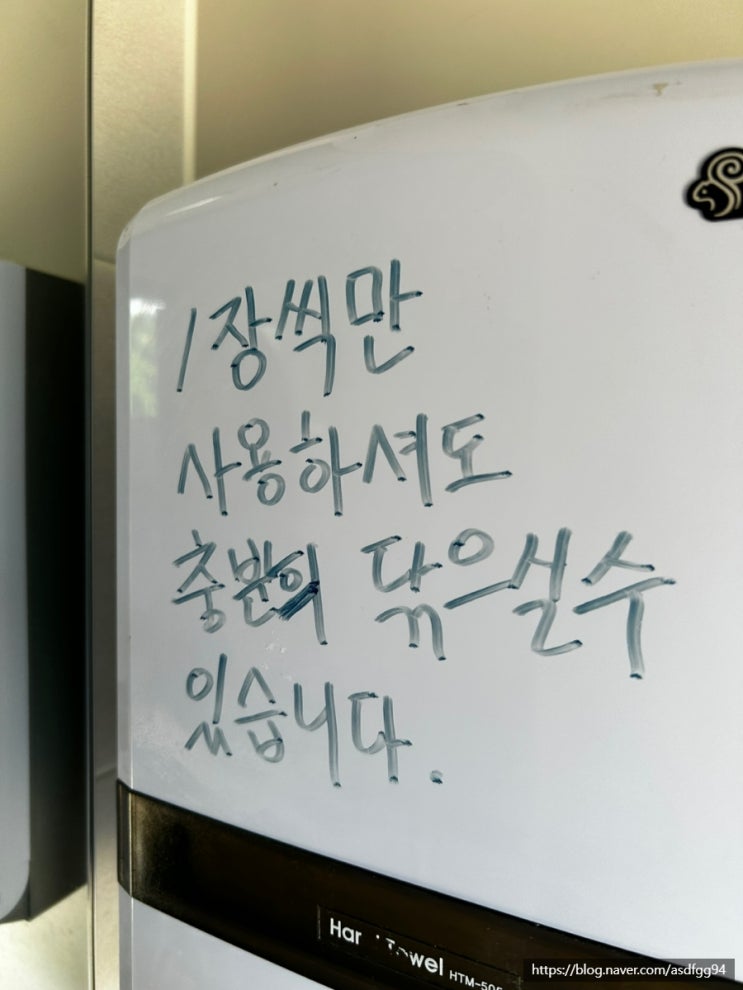 1장씩만
사용하셔도
충분희 닦으실수
있습니다.
Han Towel HTM-505
https://blog.naver.com/asdfgg94